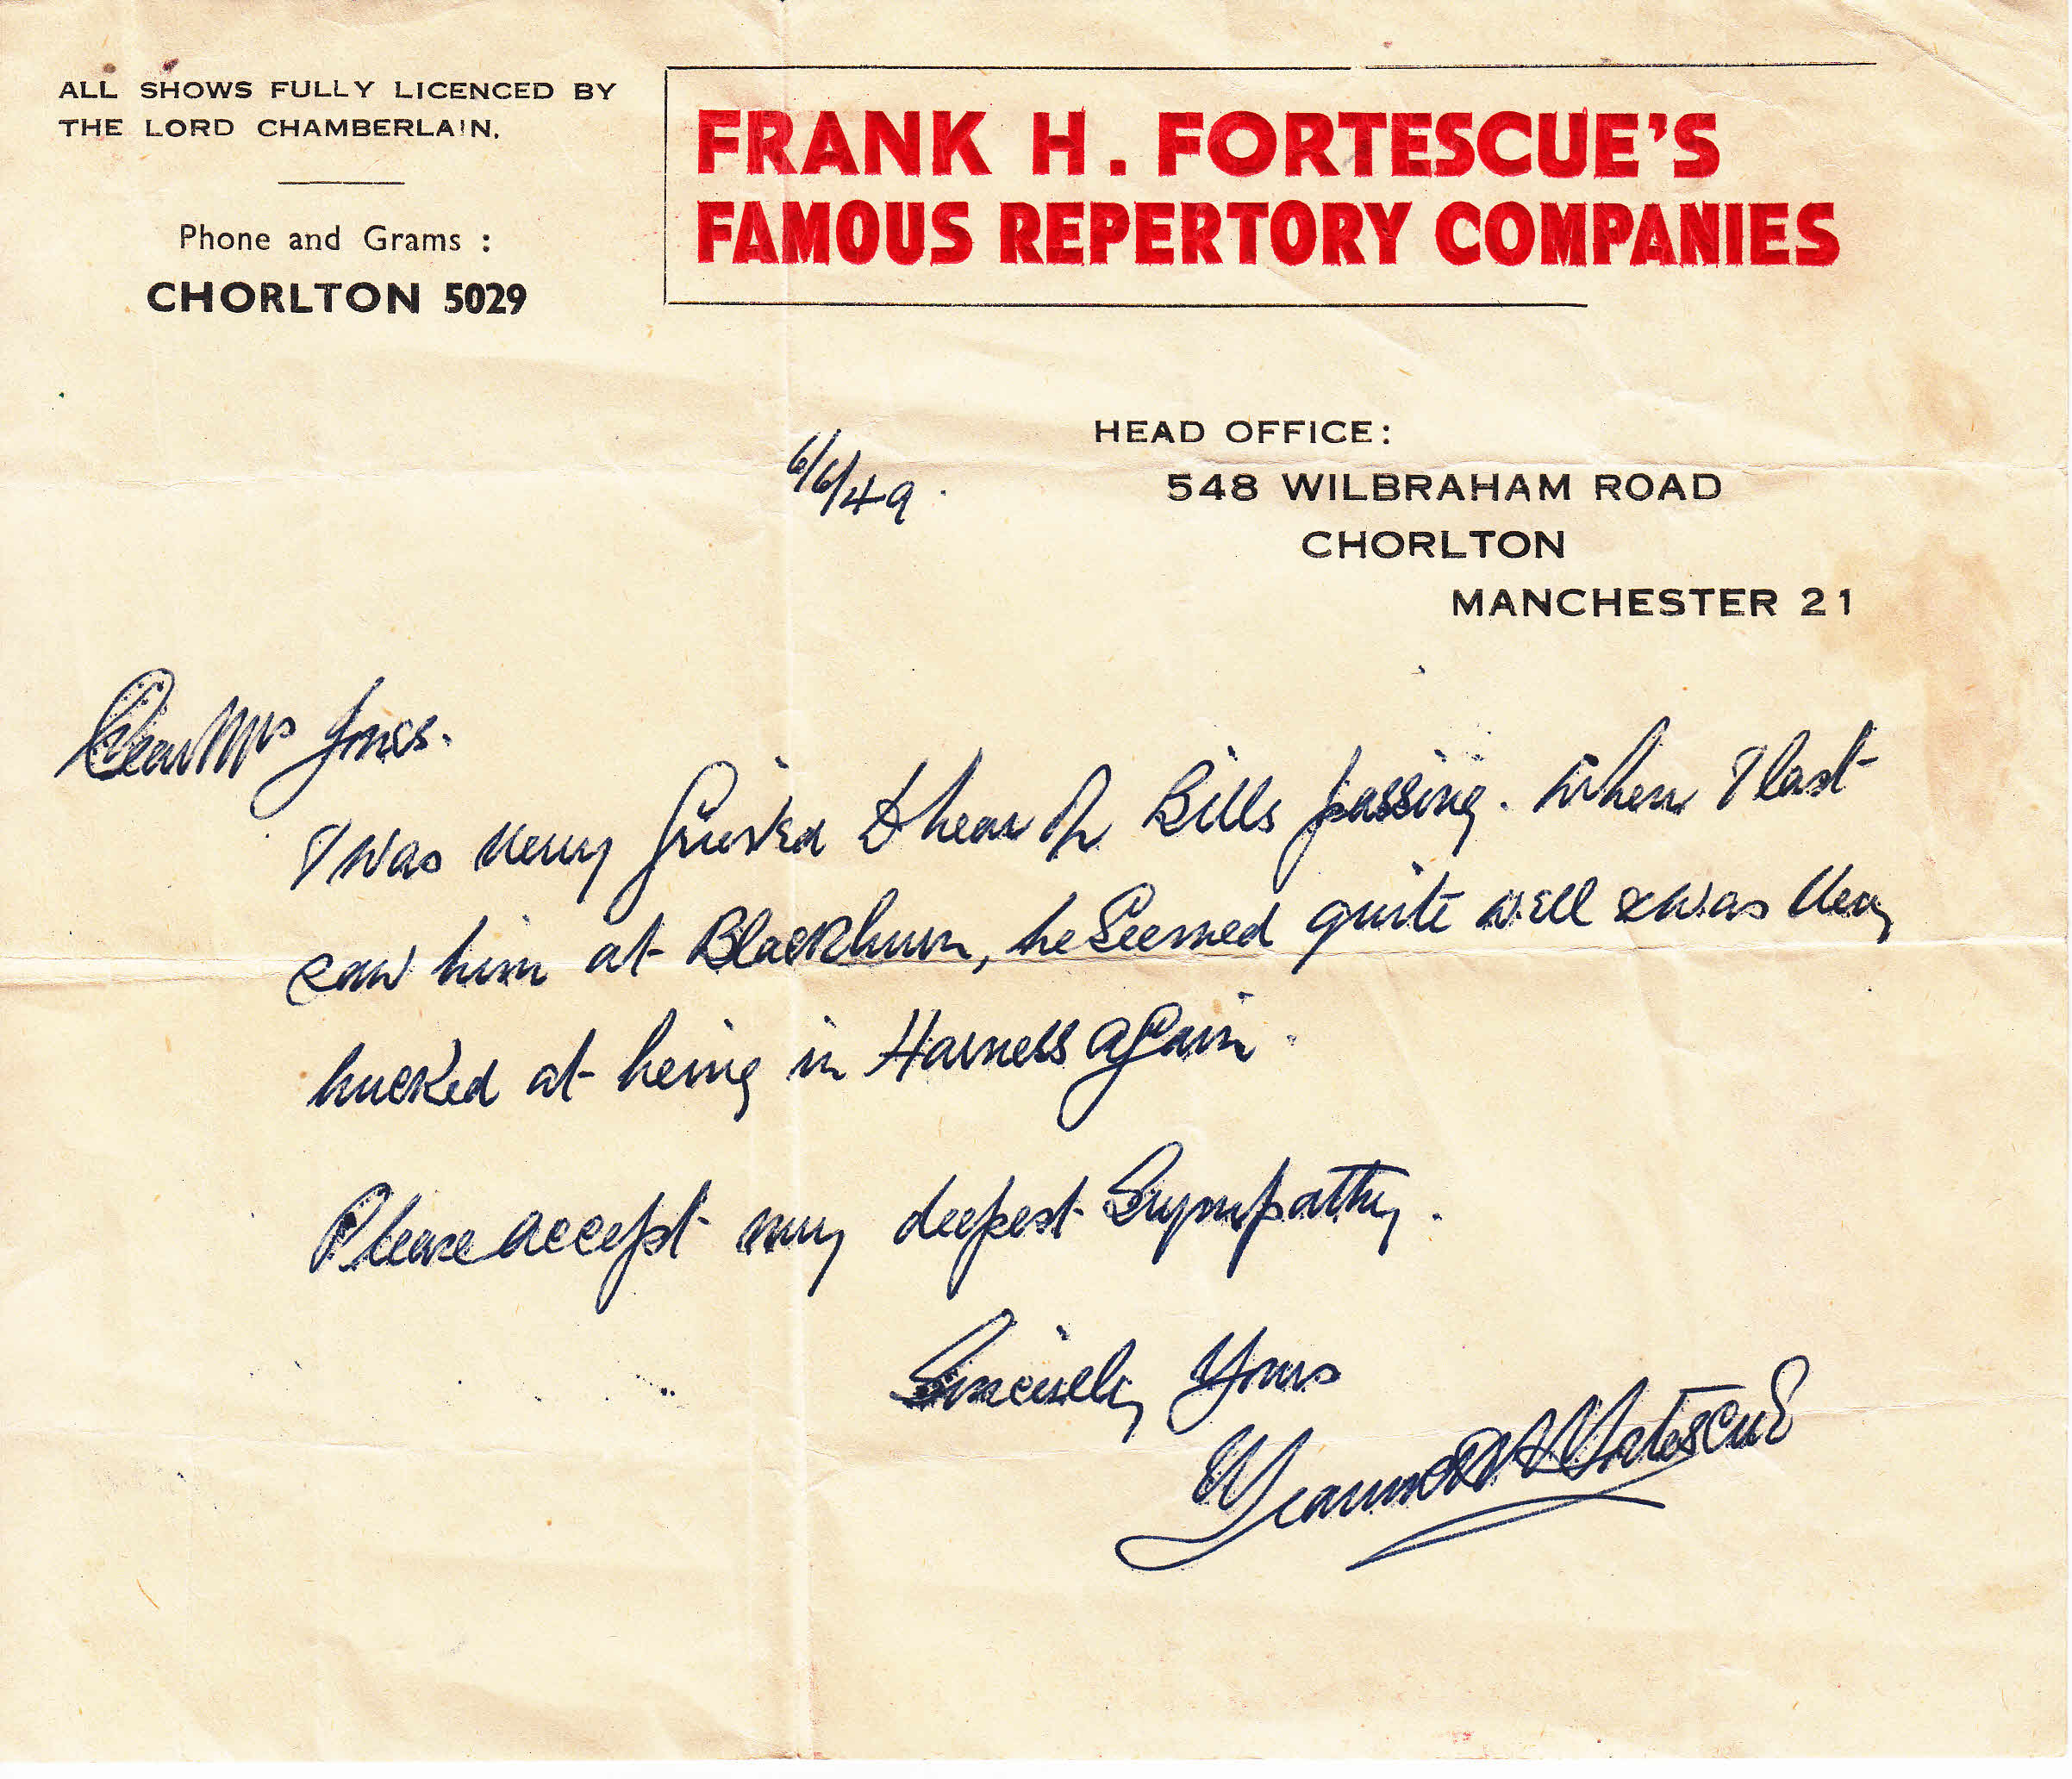 ALL SHOWS FULLY LICENCED BY
THE LORD CHAMBERLAIN.
Phone and Grams :
CHORLTON 5029
FRANK H. FORTESCUE'S
FAMOUS REPERTORY COMPANIES
HEAD OFFICE:
548 WILBRAHAM ROAD
CHORLTON
MANCHESTER 21
6/6/49.
Dear Mrs Jones.
I was very grieved to hear of Bills passing. When I last
saw him at Blackburn, he seemed quite well & was very
bucked at being in Harness again.
Please accept my deepest Sympathy.
Sincerely Yours
Fortescue